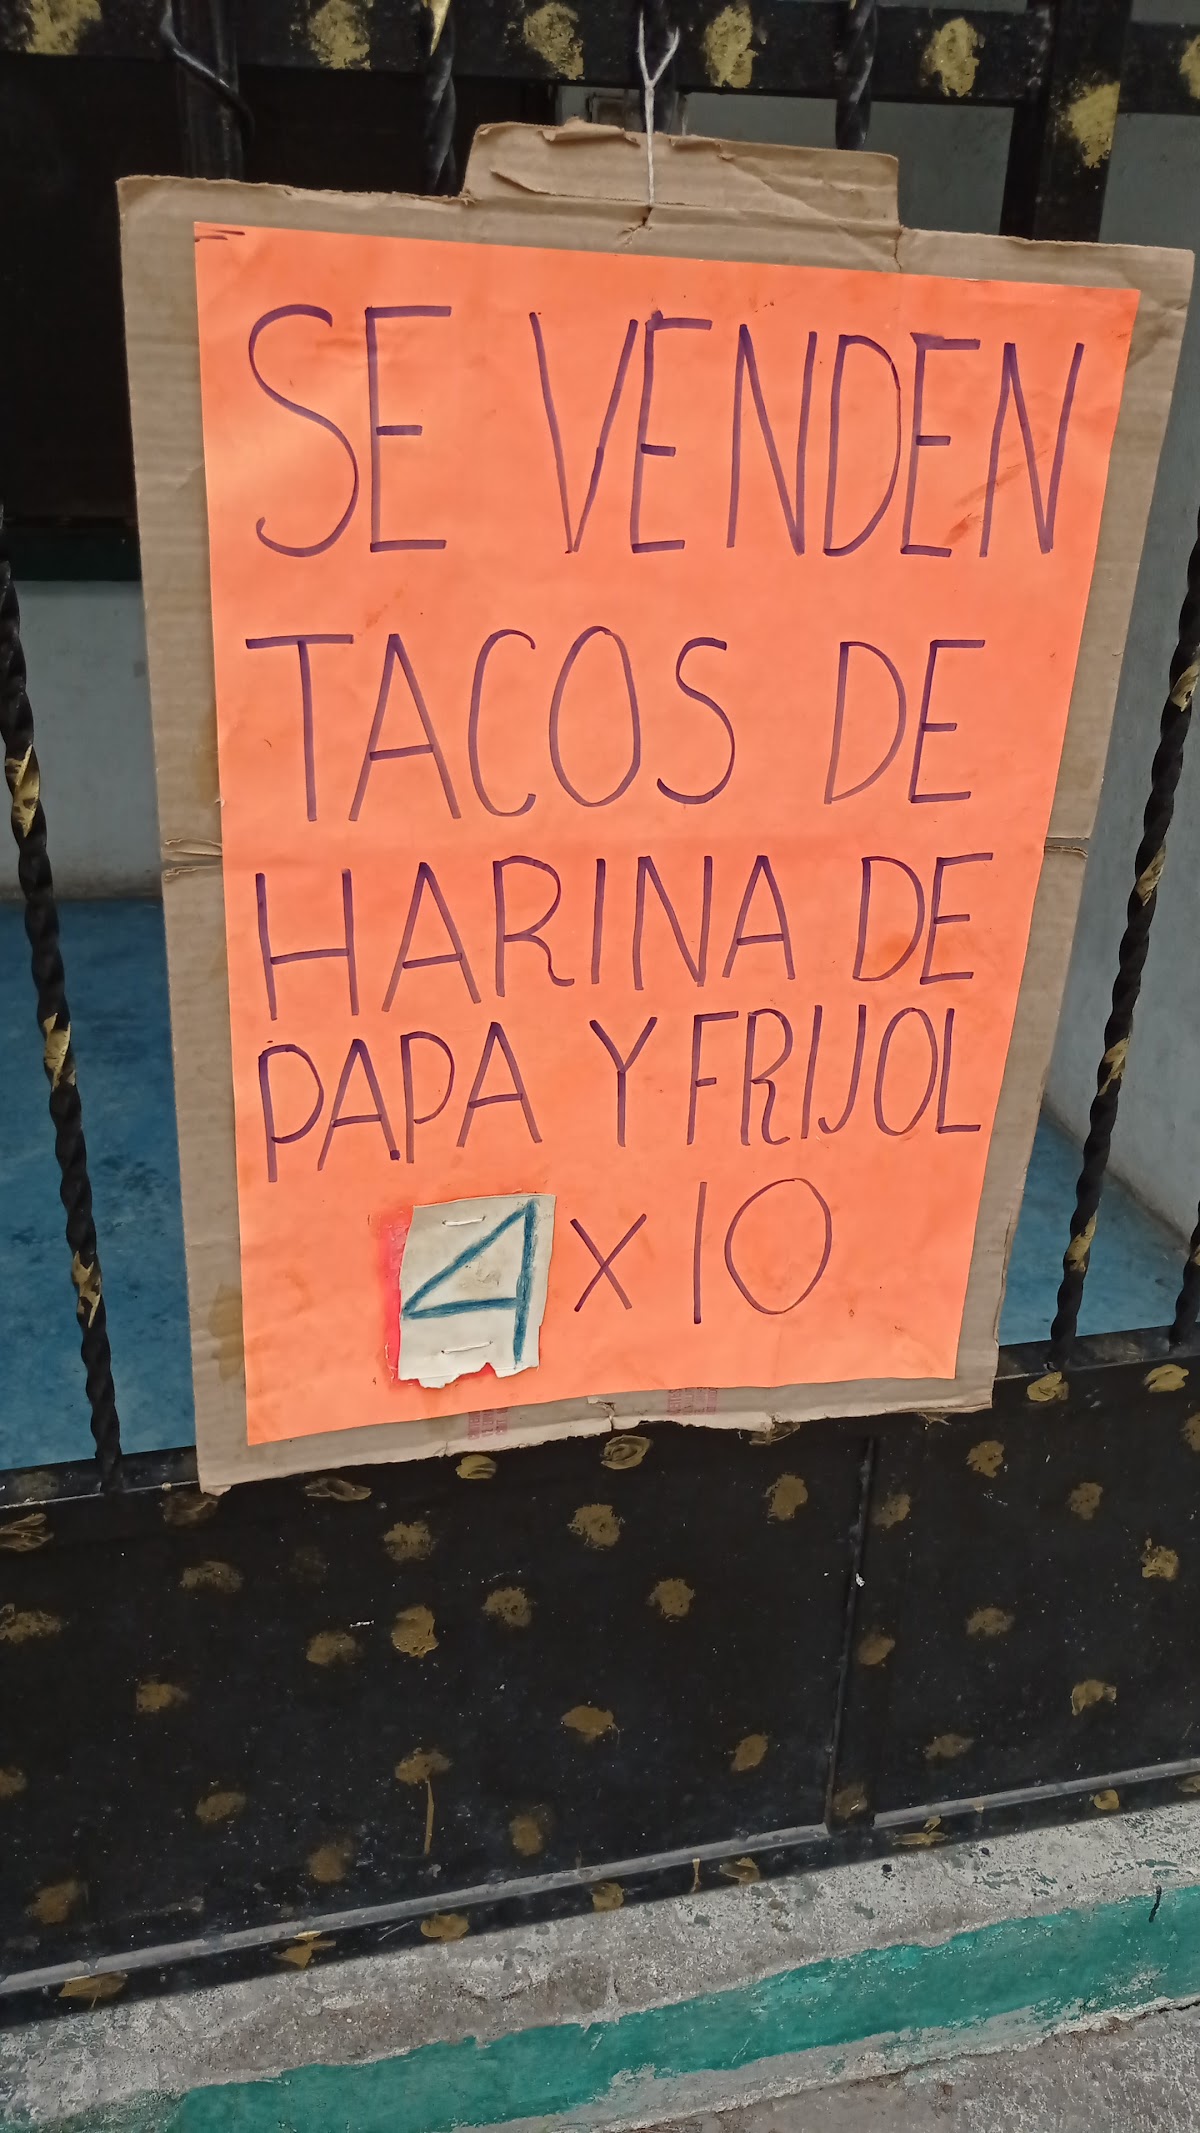 SE VENDEN
TACOS DE
HARINA DE
PAPA Y FRIJOL
4 X 10